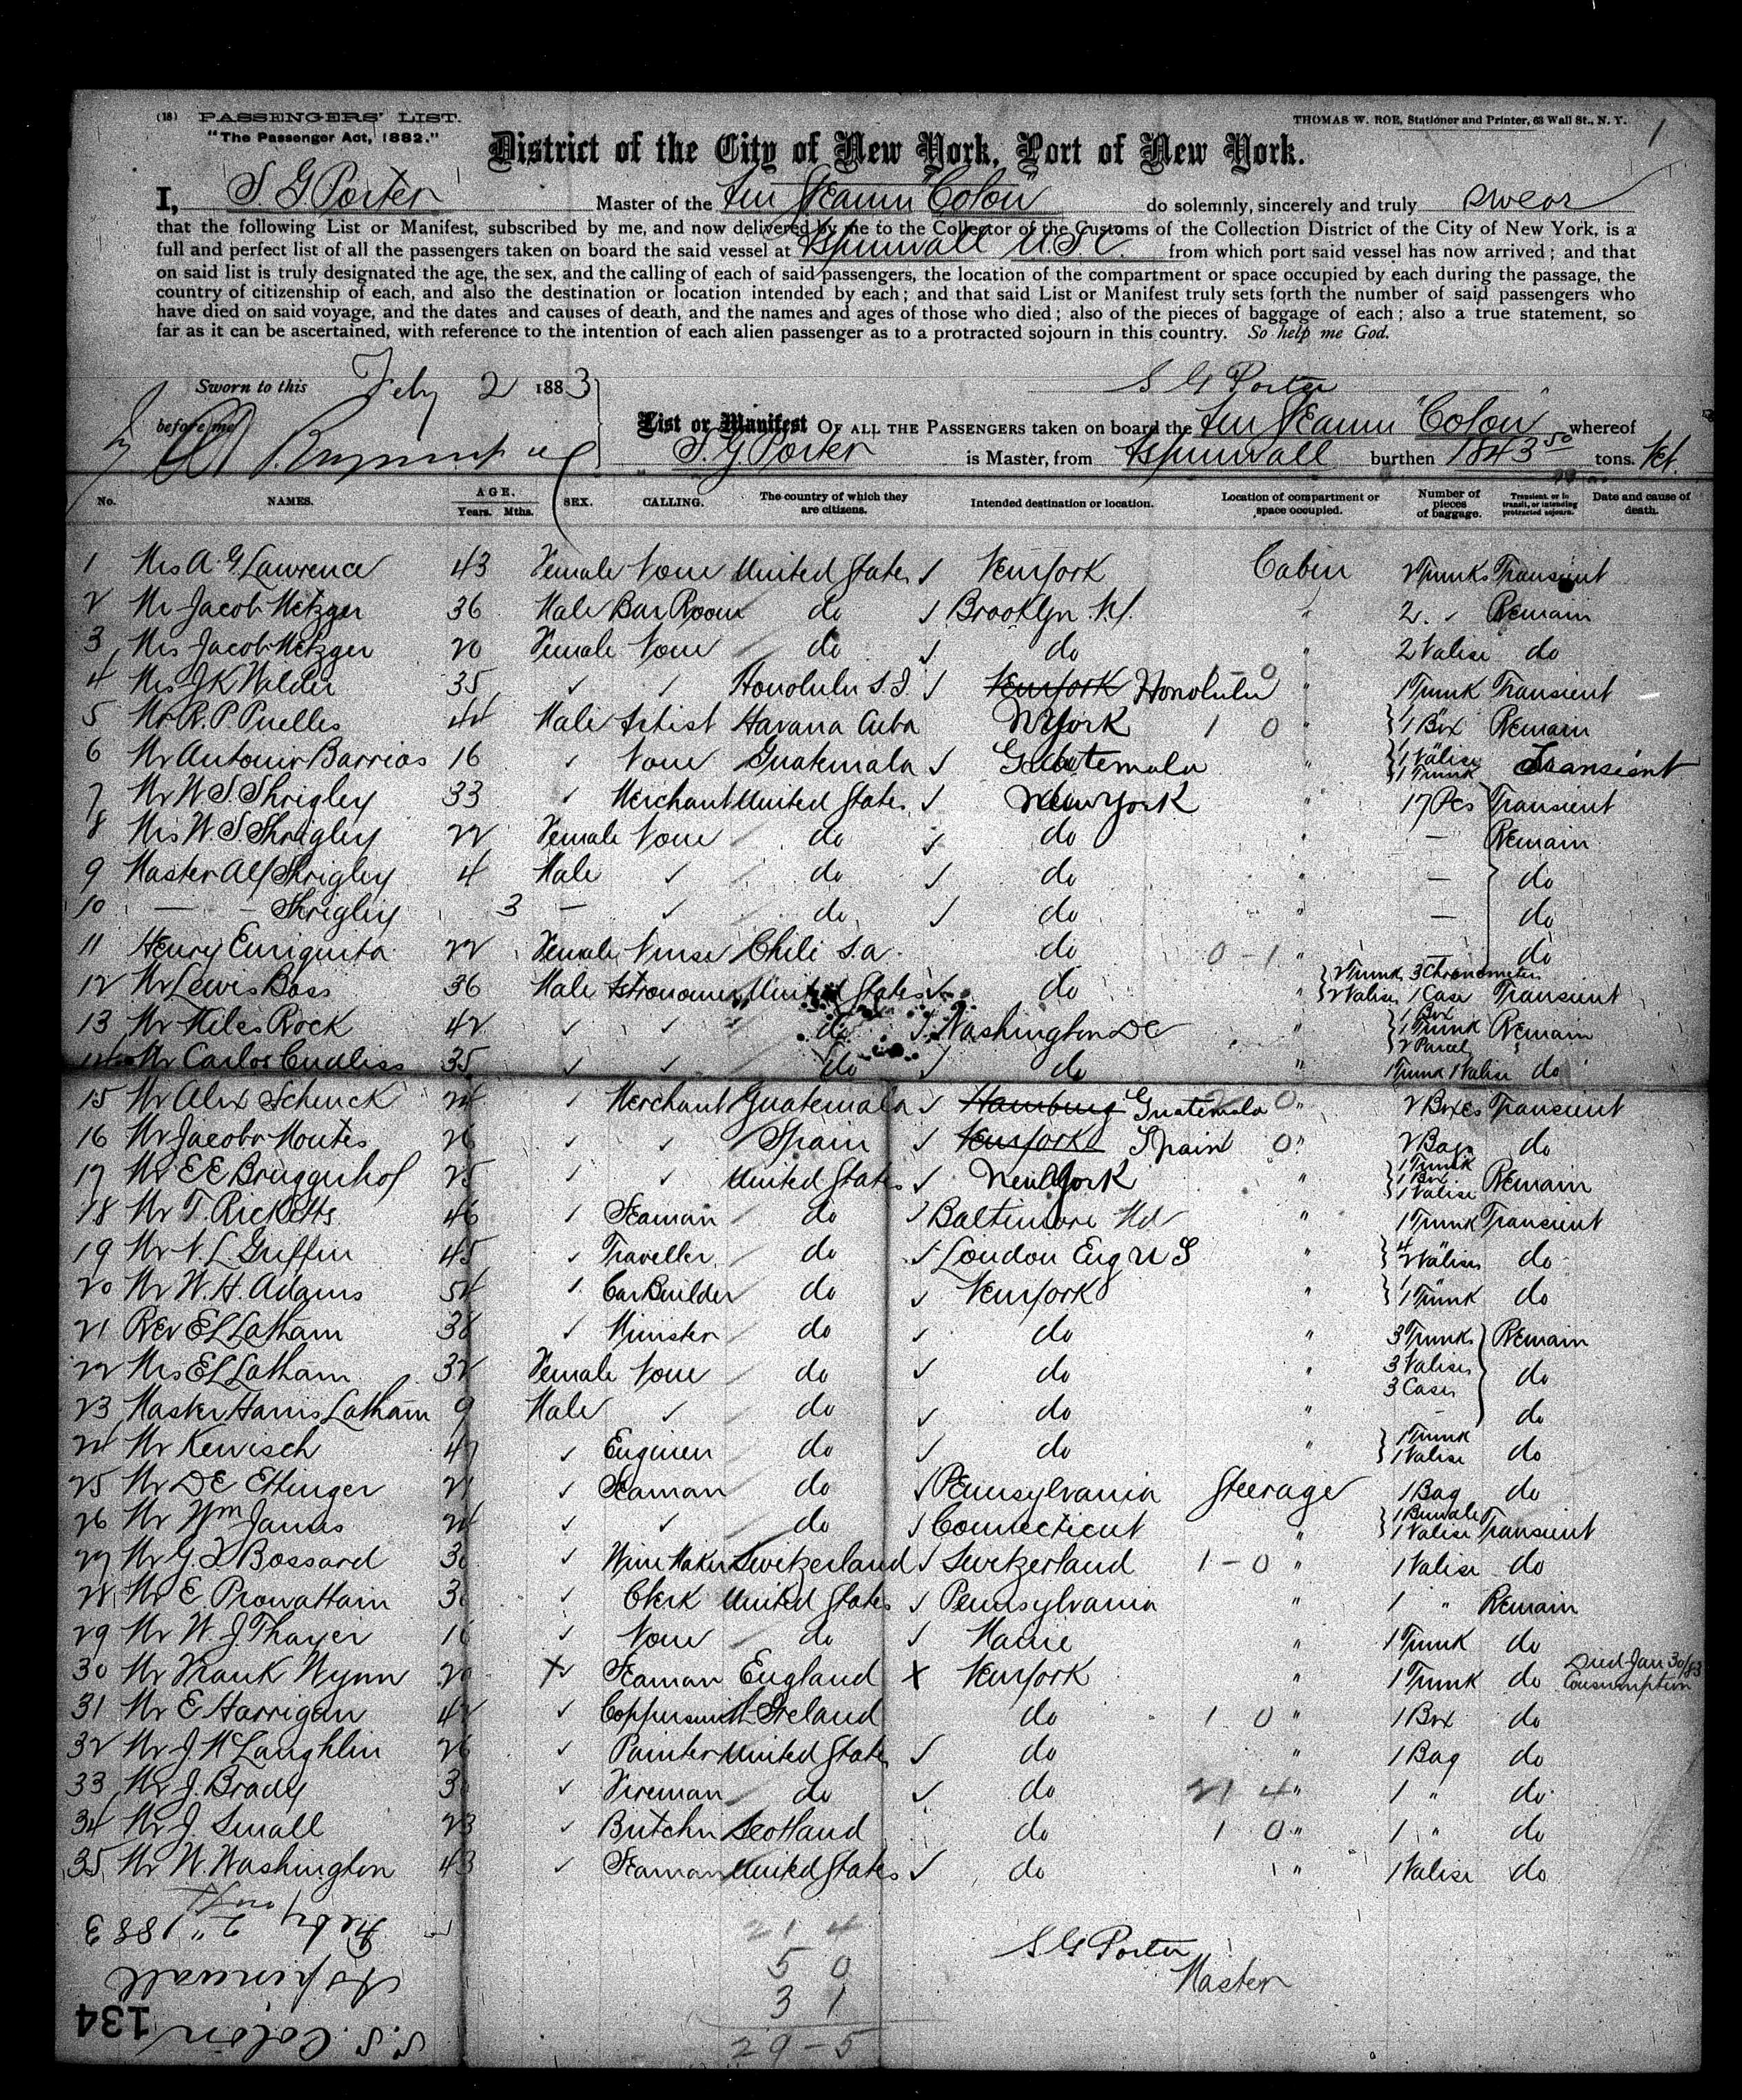 (18) PASSENGERS' LIST.
"The Passenger Act, 1882."
THOMAS W. ROE, Stationer and Printer, 63 Wall St., N. Y.
1
District of the City of New York, Port of New York.
I, S G Porter Master of the Am Steamer "Colon" do solemnly, sincerely and truly swear
that the following List or Manifest, subscribed by me, and now delivered by me to the Collector of the Customs of the Collection District of the City of New York, is a
full and perfect list of all the passengers taken on board the said vessel at Aspinwall U.S.C. from which port said vessel has now arrived; and that
on said list is truly designated the age, the sex, and the calling of each of said passengers, the location of the compartment or space occupied by each during the passage, the
country of citizenship of each, and also the destination or location intended by each; and that said List or Manifest truly sets forth the number of said passengers who
have died on said voyage, and the dates and causes of death, and the names and ages of those who died; also of the pieces of baggage of each; also a true statement, so
far as it can be ascertained, with reference to the intention of each alien passenger as to a protracted sojourn in this country. So help me God.
Sworn to this Feby 2 1883
S G Porter
before me
List or Manifest OF ALL THE PASSENGERS taken on board the Am Steamer "Colon" whereof
S. G Porter is Master, from Aspinwall burthen 1843 50 tons.
No. NAMES. AGE. Years. Mths. SEX. CALLING. The country of which they are citizens. Intended destination or location. Location of compartment or space occupied. Number of pieces of baggage. Transient, or in transit, or intending protracted sojourn. Date and cause of death.
1 Mrs A. G Lawrence 43 Female None United States ✓ New York Cabin 2 Trunks Transient
2 Mr Jacob Metzger 36 Male Bar Room do ✓ Brooklyn N.Y. " 2 " Remain
3 Mrs Jacob Metzger 20 Female None do ✓ do " 2 Valise do
4 Mrs J K Wilder 35 ✓ ✓ Honolulu S.I ✓ New York Honolulu 1-0 " 1 Trunk Transient
5 Mr R. P. Puelles 44 Male Artist Havana Cuba N York 1 0 " 1 " 1 Box Remain
6 Mr Antonio Barrios 16 ✓ None Guatemala ✓ Guatemala " 1 " 1 Valise 1 Trunk Transient
7 Mr W S. Shrigley 33 ✓ Merchant United States ✓ New York " 17 Pcs Transient
8 Mrs W. S. Shrigley 22 Female None do ✓ do " — Remain
9 Master Alf Shrigley 4 Male ✓ do ✓ do " — do
10 — - Shrigley 3 — ✓ do ✓ do " — do
11 Henry Enriquita 22 Female Nurse Chili S.a. do 0-1 " — do
12 Mr Lewis Boss 36 Male Astronomer United States ✓ do " 2 Trunk 3 Chronometers 2 Valise 1 Case Transient
13 Mr Miles Rock 42 ✓ ✓ do ✓ Washington DC " 1 Box 1 Trunk 2 Parcel Remain
14 Mr Carlos Cudliss 35 ✓ ✓ do ✓ do " 1 Trunk 1 Valise do
15 Mr Alex Schenck 24 ✓ Merchant Guatemala ✓ Hamburg Guatemala 0 " 2 Boxes Transient
16 Mr Jacobo Montes 26 ✓ ✓ Spain ✓ New York Spain 0 " 2 Bags do
17 Mr E E Bruggerhof 25 ✓ ✓ United States ✓ New York " 1 Trunk 1 Box 1 Valise Remain
18 Mr T. Ricketts 46 ✓ Seaman do ✓ Baltimore Md " 1 Trunk Transient
19 Mr N. L. Griffin 45 ✓ Traveller do ✓ London Eng U S " 4 " 2 Valises do
20 Mr W. H. Adams 54 ✓ Car Builder do ✓ New York 1 " 1 Trunk do
21 Rev E L Latham 38 ✓ Minister do ✓ do " 3 Trunks Remain
22 Mrs E L Latham 32 Female None do ✓ do " 3 Valises 3 Cases do
23 Master Harris Latham 9 Male ✓ do ✓ do " - do
24 Mr Kewisch 47 ✓ Engineer do ✓ do " 1 Trunk 1 Valise do
25 Mr D E Ettinger 21 ✓ Seaman do ✓ Pennsylvania Steerage 1 Bag do
26 Mr Wm James 24 ✓ ✓ do ✓ Connecticut " 1 Valise Transient
27 Mr G. L Bossard 3 ✓ Wine Maker Switzerland ✓ Switzerland 1-0 " 1 Valise do
28 Mr E. Prowattain 3 ✓ Clerk United States ✓ Pennsylvania " 1 " Remain
29 Mr W. J Thayer 1 ✓ None do ✓ Maine " 1 Trunk do
30 Mr Frank Wynn 20 X✓ Seaman England X New York " 1 Trunk do Died Jan 30/83 Consumption
31 Mr E Harrigan 42 ✓ Coppersmith Ireland do 1 0 " 1 Box do
32 Mr J. McLaughlin 26 ✓ Painter United States ✓ do " 1 Bag do
33 Mr J. Brady 3 ✓ Fireman do ✓ do 21 4 " 1 " do
34 Mr J Small 23 ✓ Butcher Scotland do 1 0 " 1 " do
35 Mr W. Washington 43 ✓ Seaman United States ✓ do " 1 Valise do
21 4
5 0
3 1
29-5
S G Porter
Master
S.S. Colon
134
Aspinwall
Feby 2" 1883